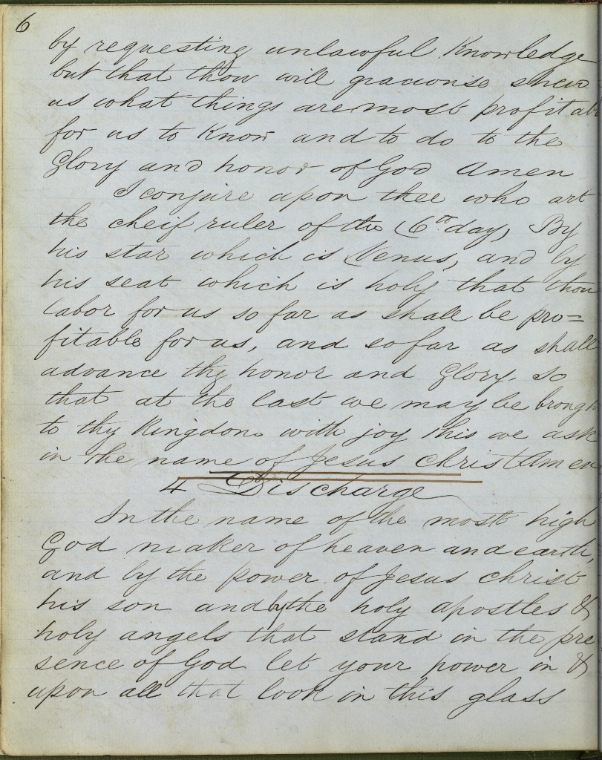 6
by requesting unlawful Knowledge
but that thow will graciouse shew
us what things are most profitab
for us to Know and to do to the
Glory and honor of God Amen
I conjure apon thee who art
the cheif ruler of the (6th day, By
his star which is Venus, and by
his seat which is holy that thou
labor for us so far as shall be pro=
fitable for us, and so far as shall
advance thy honor and Glory. so
that at the last we may be brough
to thy Kingdon with joy this we ask
in the name of Jesus christ Amen
4 Discharge
In the name of the most high
God maker of heaven and earth,
and by the power of Jesus christ
his son and by the holy apostles &
holy angels that stand in the pre
sence of God let your power in &
upon all that look in this glass